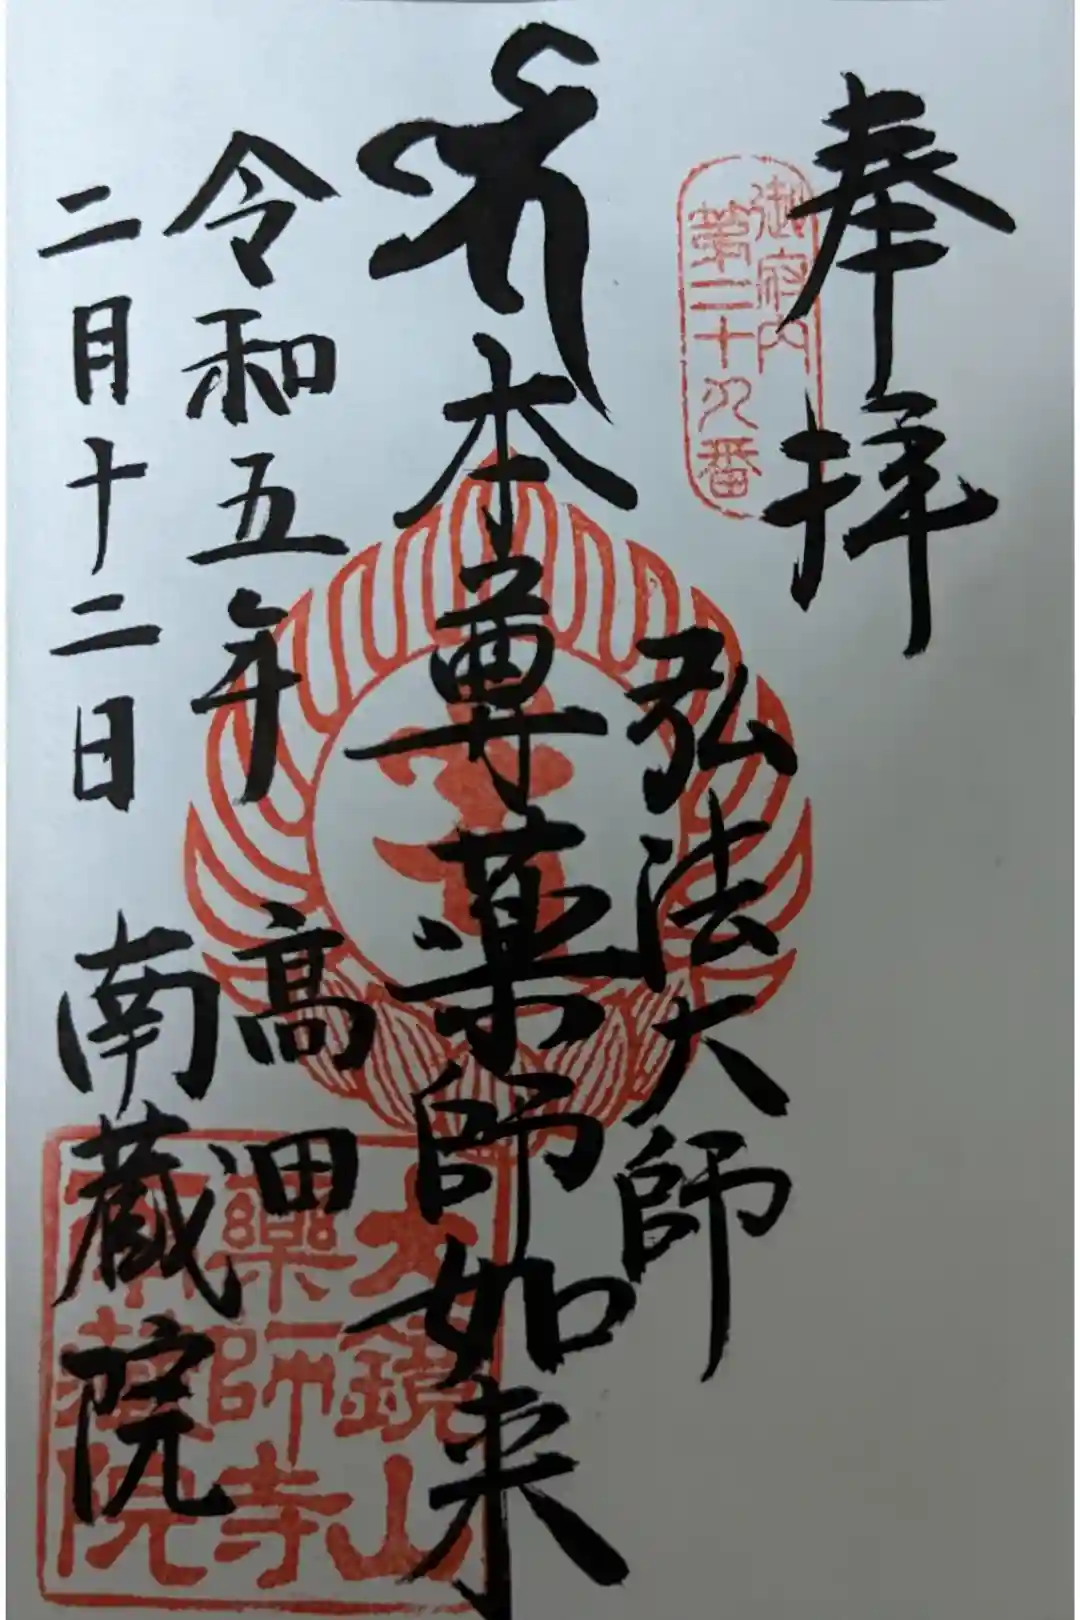 奉拝
御府内
第二十九番
弘法大師
本尊薬師如来
令和五年
二月十二日
高田
南蔵院
大鏡山
薬師寺
南蔵院